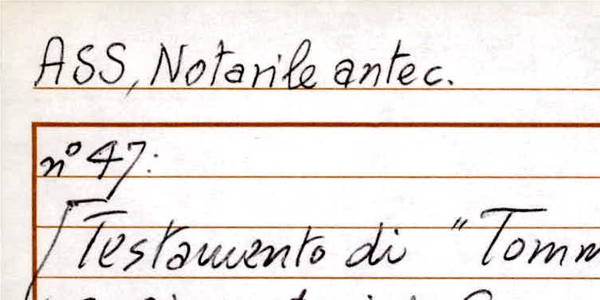 ASS, Notarile antec.
n° 47:
Testamento di "Tomm